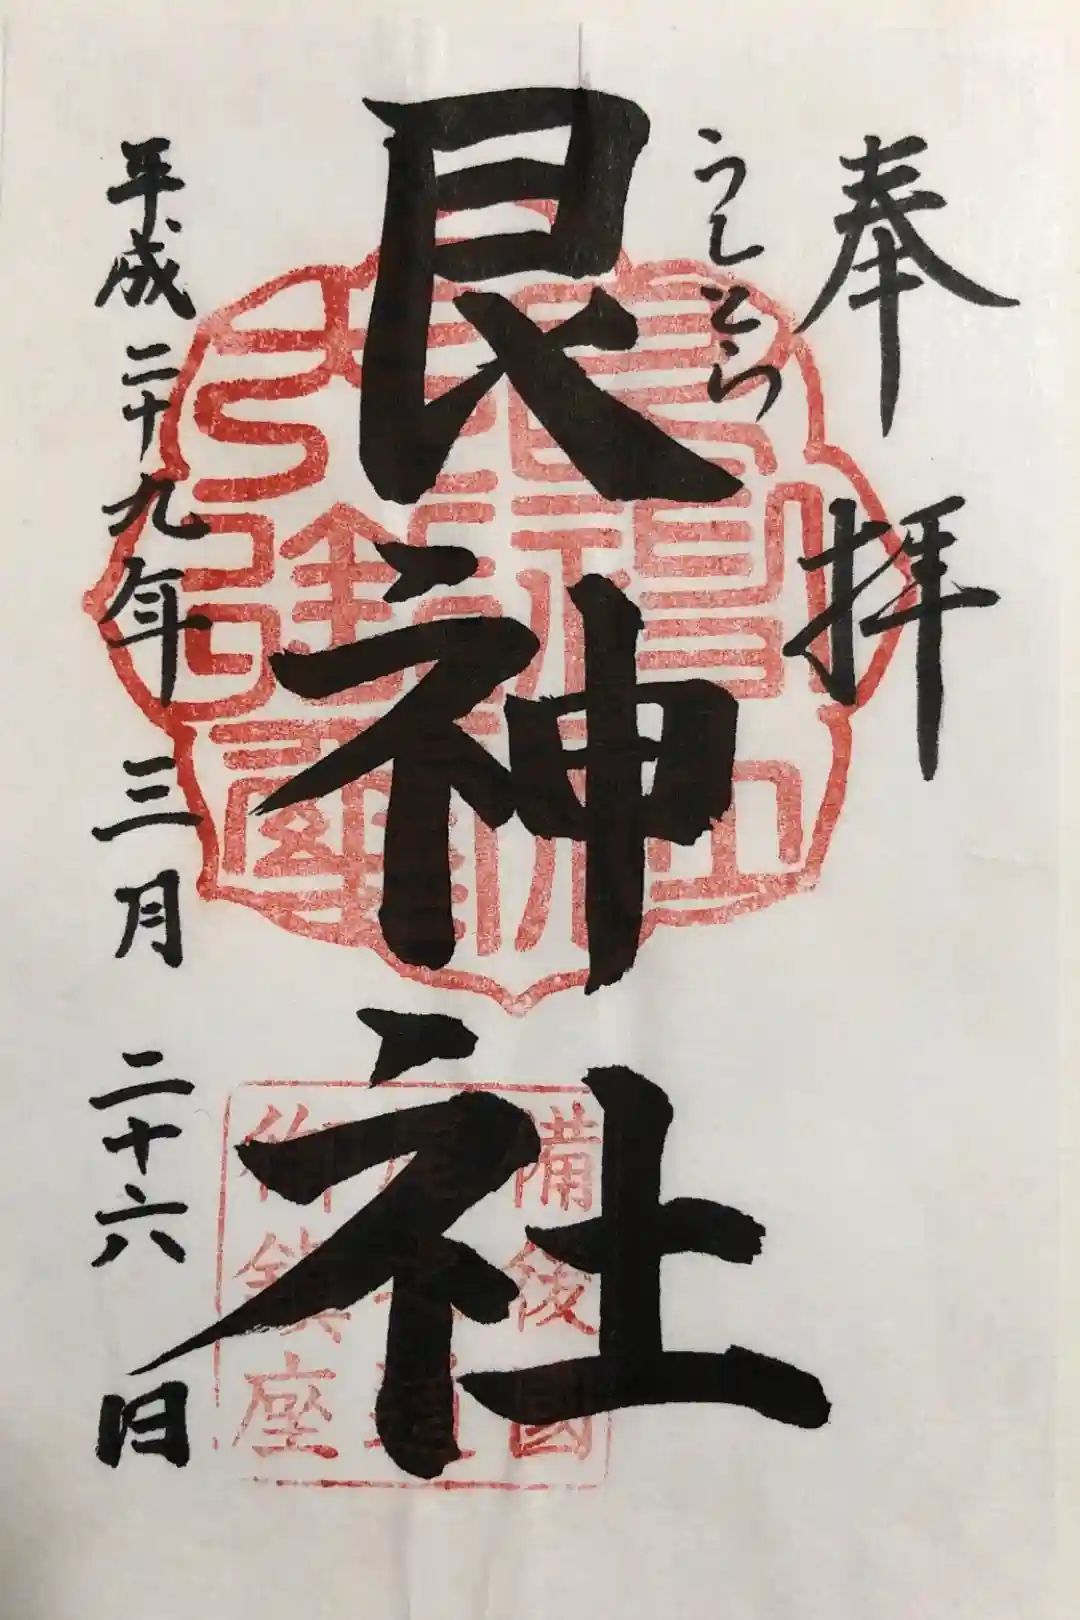 奉拝
うしとら
艮神社
平成二十九年三月二十六日
備後國
御鎮座